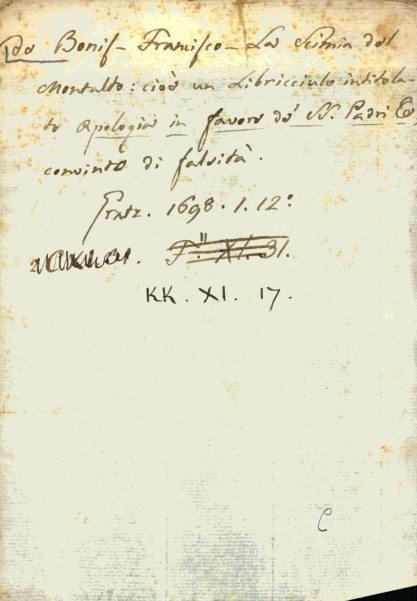 De Bonis - Francisco - La Scimia del
Montalto: cioè un Libricciulo intitola-
to Apologia in favore de' SS. Padri &
convinto di falsità.
Gratz. 1698. 1. 12°.
P." XI. 31.
KK. XI. 17.
C